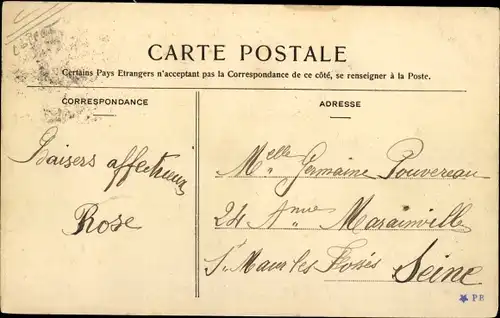 CARTE POSTALE
Certains Pays Etrangers n'acceptant pas la Correspondance de ce côté, se renseigner à la Poste.
CORRESPONDANCE
ADRESSE
Baisers affectueux
Rose
Melle Germaine Pouvereau
24 Anue Marainville
St Maur les Fossés Seine
PR